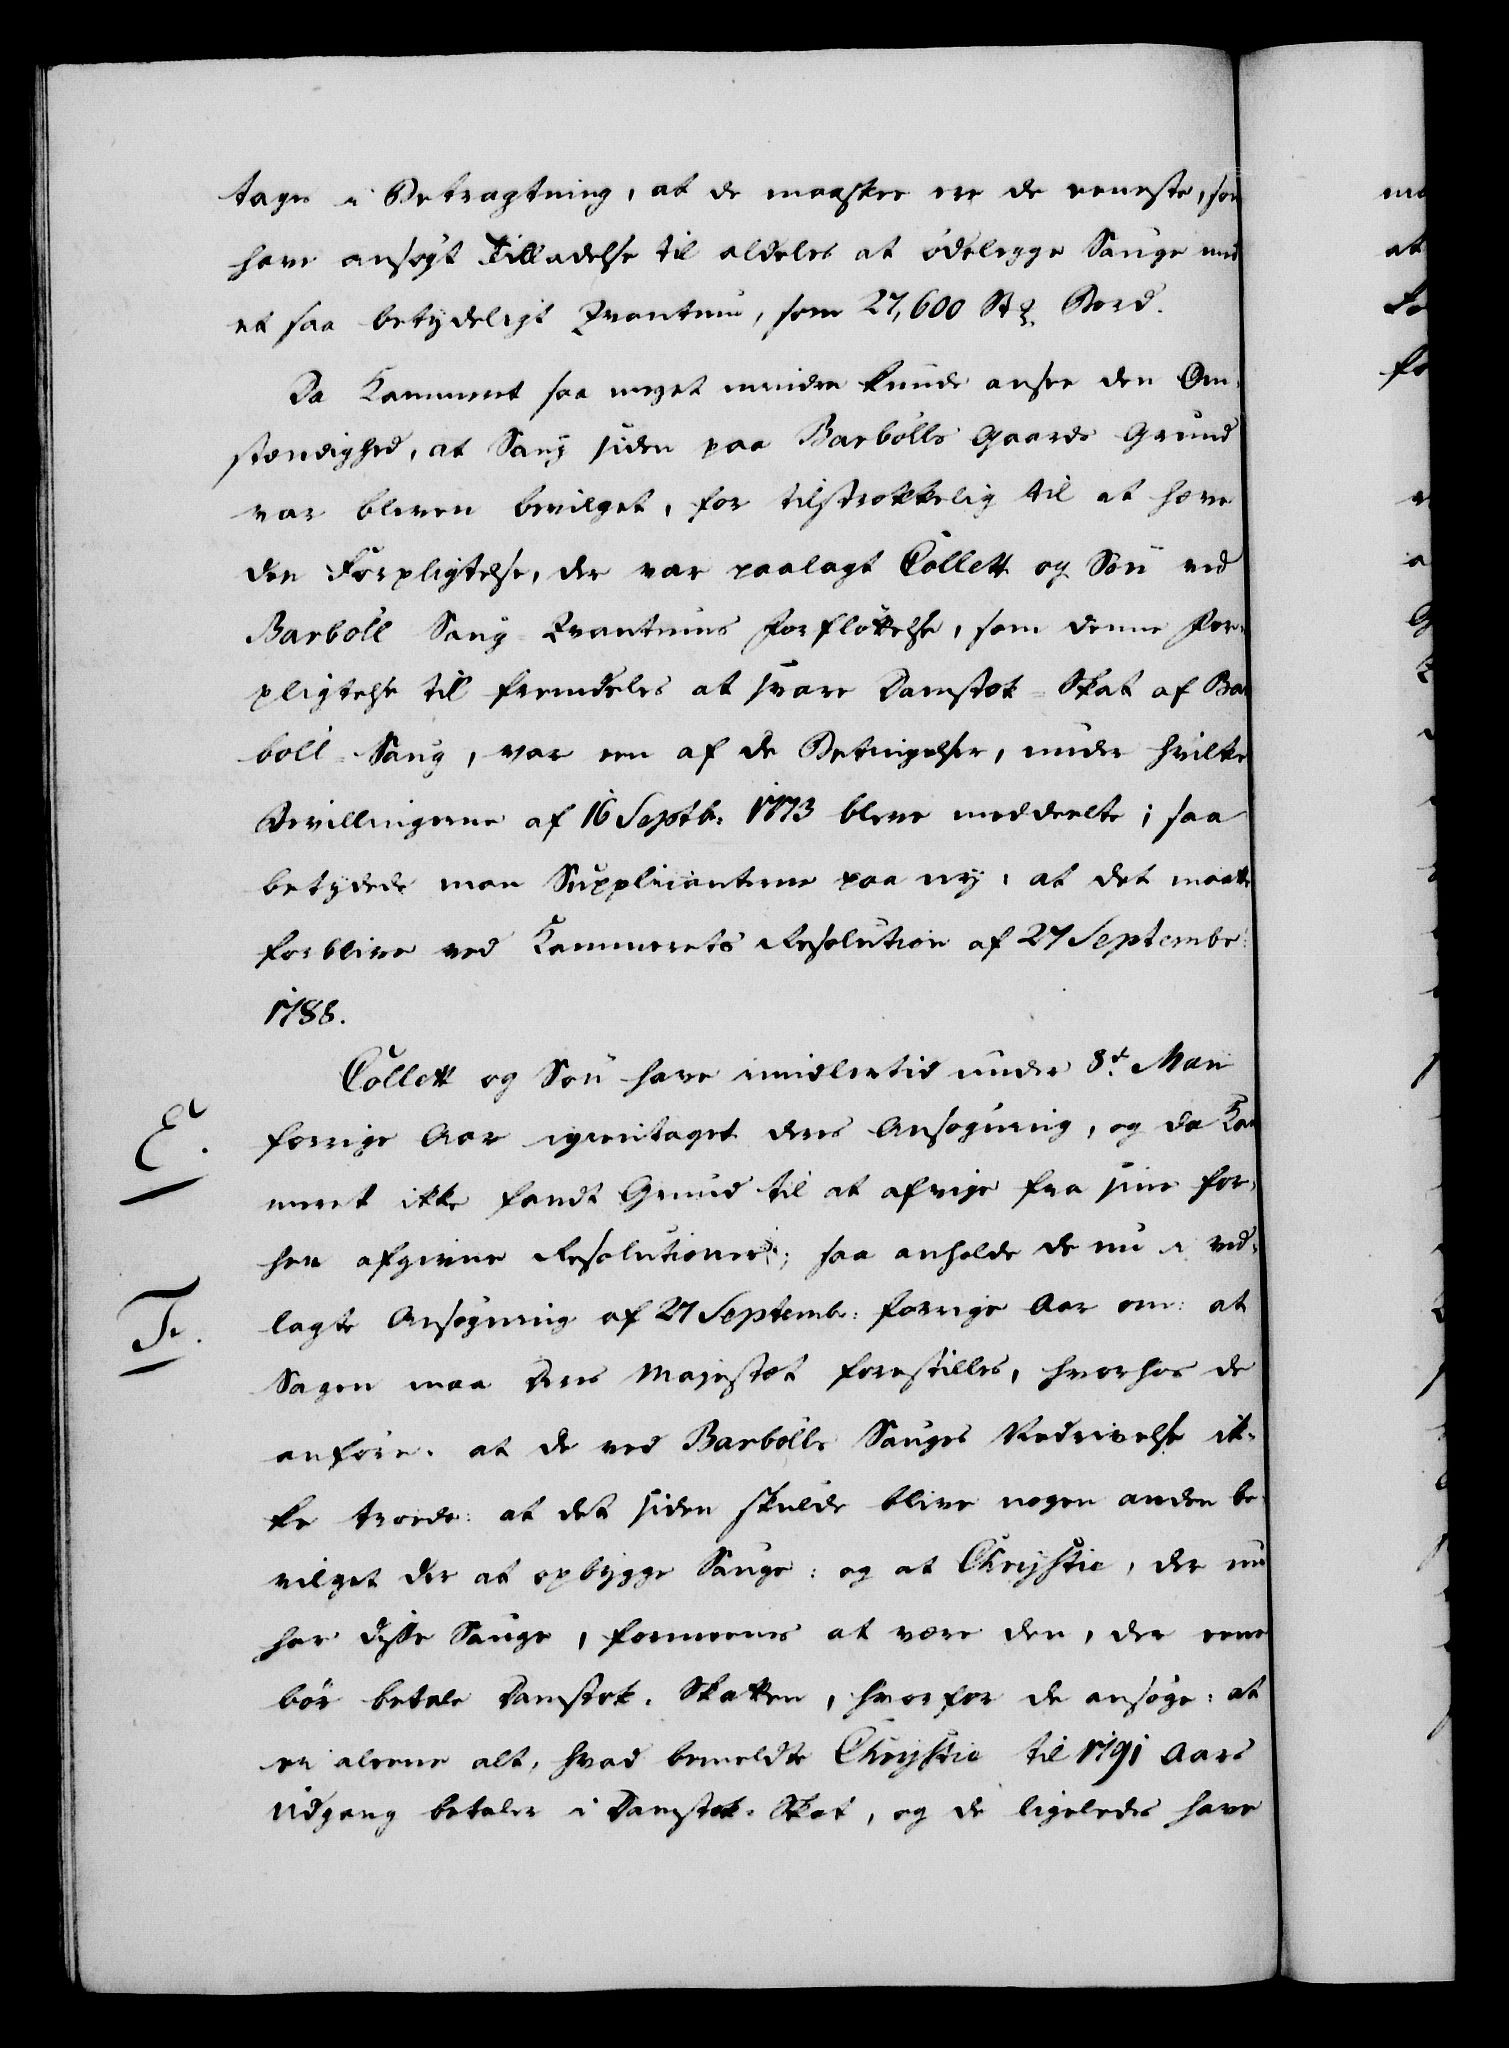 tages i Betragtning, at de maaskee ere de eeneste, som
have ansøgt Tilladelse til aldeles at ødelegge Sauge med
et saa betydeligt Qvantum, som 27,600 St. Bord.
Da Kammeret saa meget mindre kunde ansee den Om-
stændighed, at Saug siden paa Barbölls Gaards Grund
var bleven bevilget, for tilstrekkelig til at hæve
den Forpligtelse, der var paalagt Collett og Søn ved
Barböll Saug-Qvantums Forflöttelse, som denne For-
pligtelse til fremdeles at svare Damstok-Skat af Bar-
böll-Saug, var een af de Betingelser, under hvilke
Bevillingerne af 16 Septb: 1773 bleve meddeelte; saa
betydede man Supplicanterne paa ny: at det maatte
forblive ved Kammerets Resolution af 27 Septembr:
1788.
Collett og Søn have imidlertid under 8de Maii
E.
forrige Aar igientaget deres Ansøgning, og da Kam-
meret ikke fandt Grund til at afvige fra sine for-
hen afgivne Resolutioner; saa anholde de nu i ved-
F.
lagte Ansøgning af 27 Septemb: forrige Aar om: at
Sagen maa Deres Majestæt forestilles, hvorhos de
anføre: at de ved Barbölls Sauges Nedrivelse ik-
ke troede: at det siden skulde blive nogen anden be-
vilget der at opbygge Sauge: og at Chrystie, der nu
har disse Sauge, formeenes at være den, der eene
bør betale Damstok-Skatten, hvorfor de ansøge: at
ei aleene alt, hvad bemeldte Chrystie til 1791 Aars
Udgang betaler i Damstok-Skat, og de ligeledes have